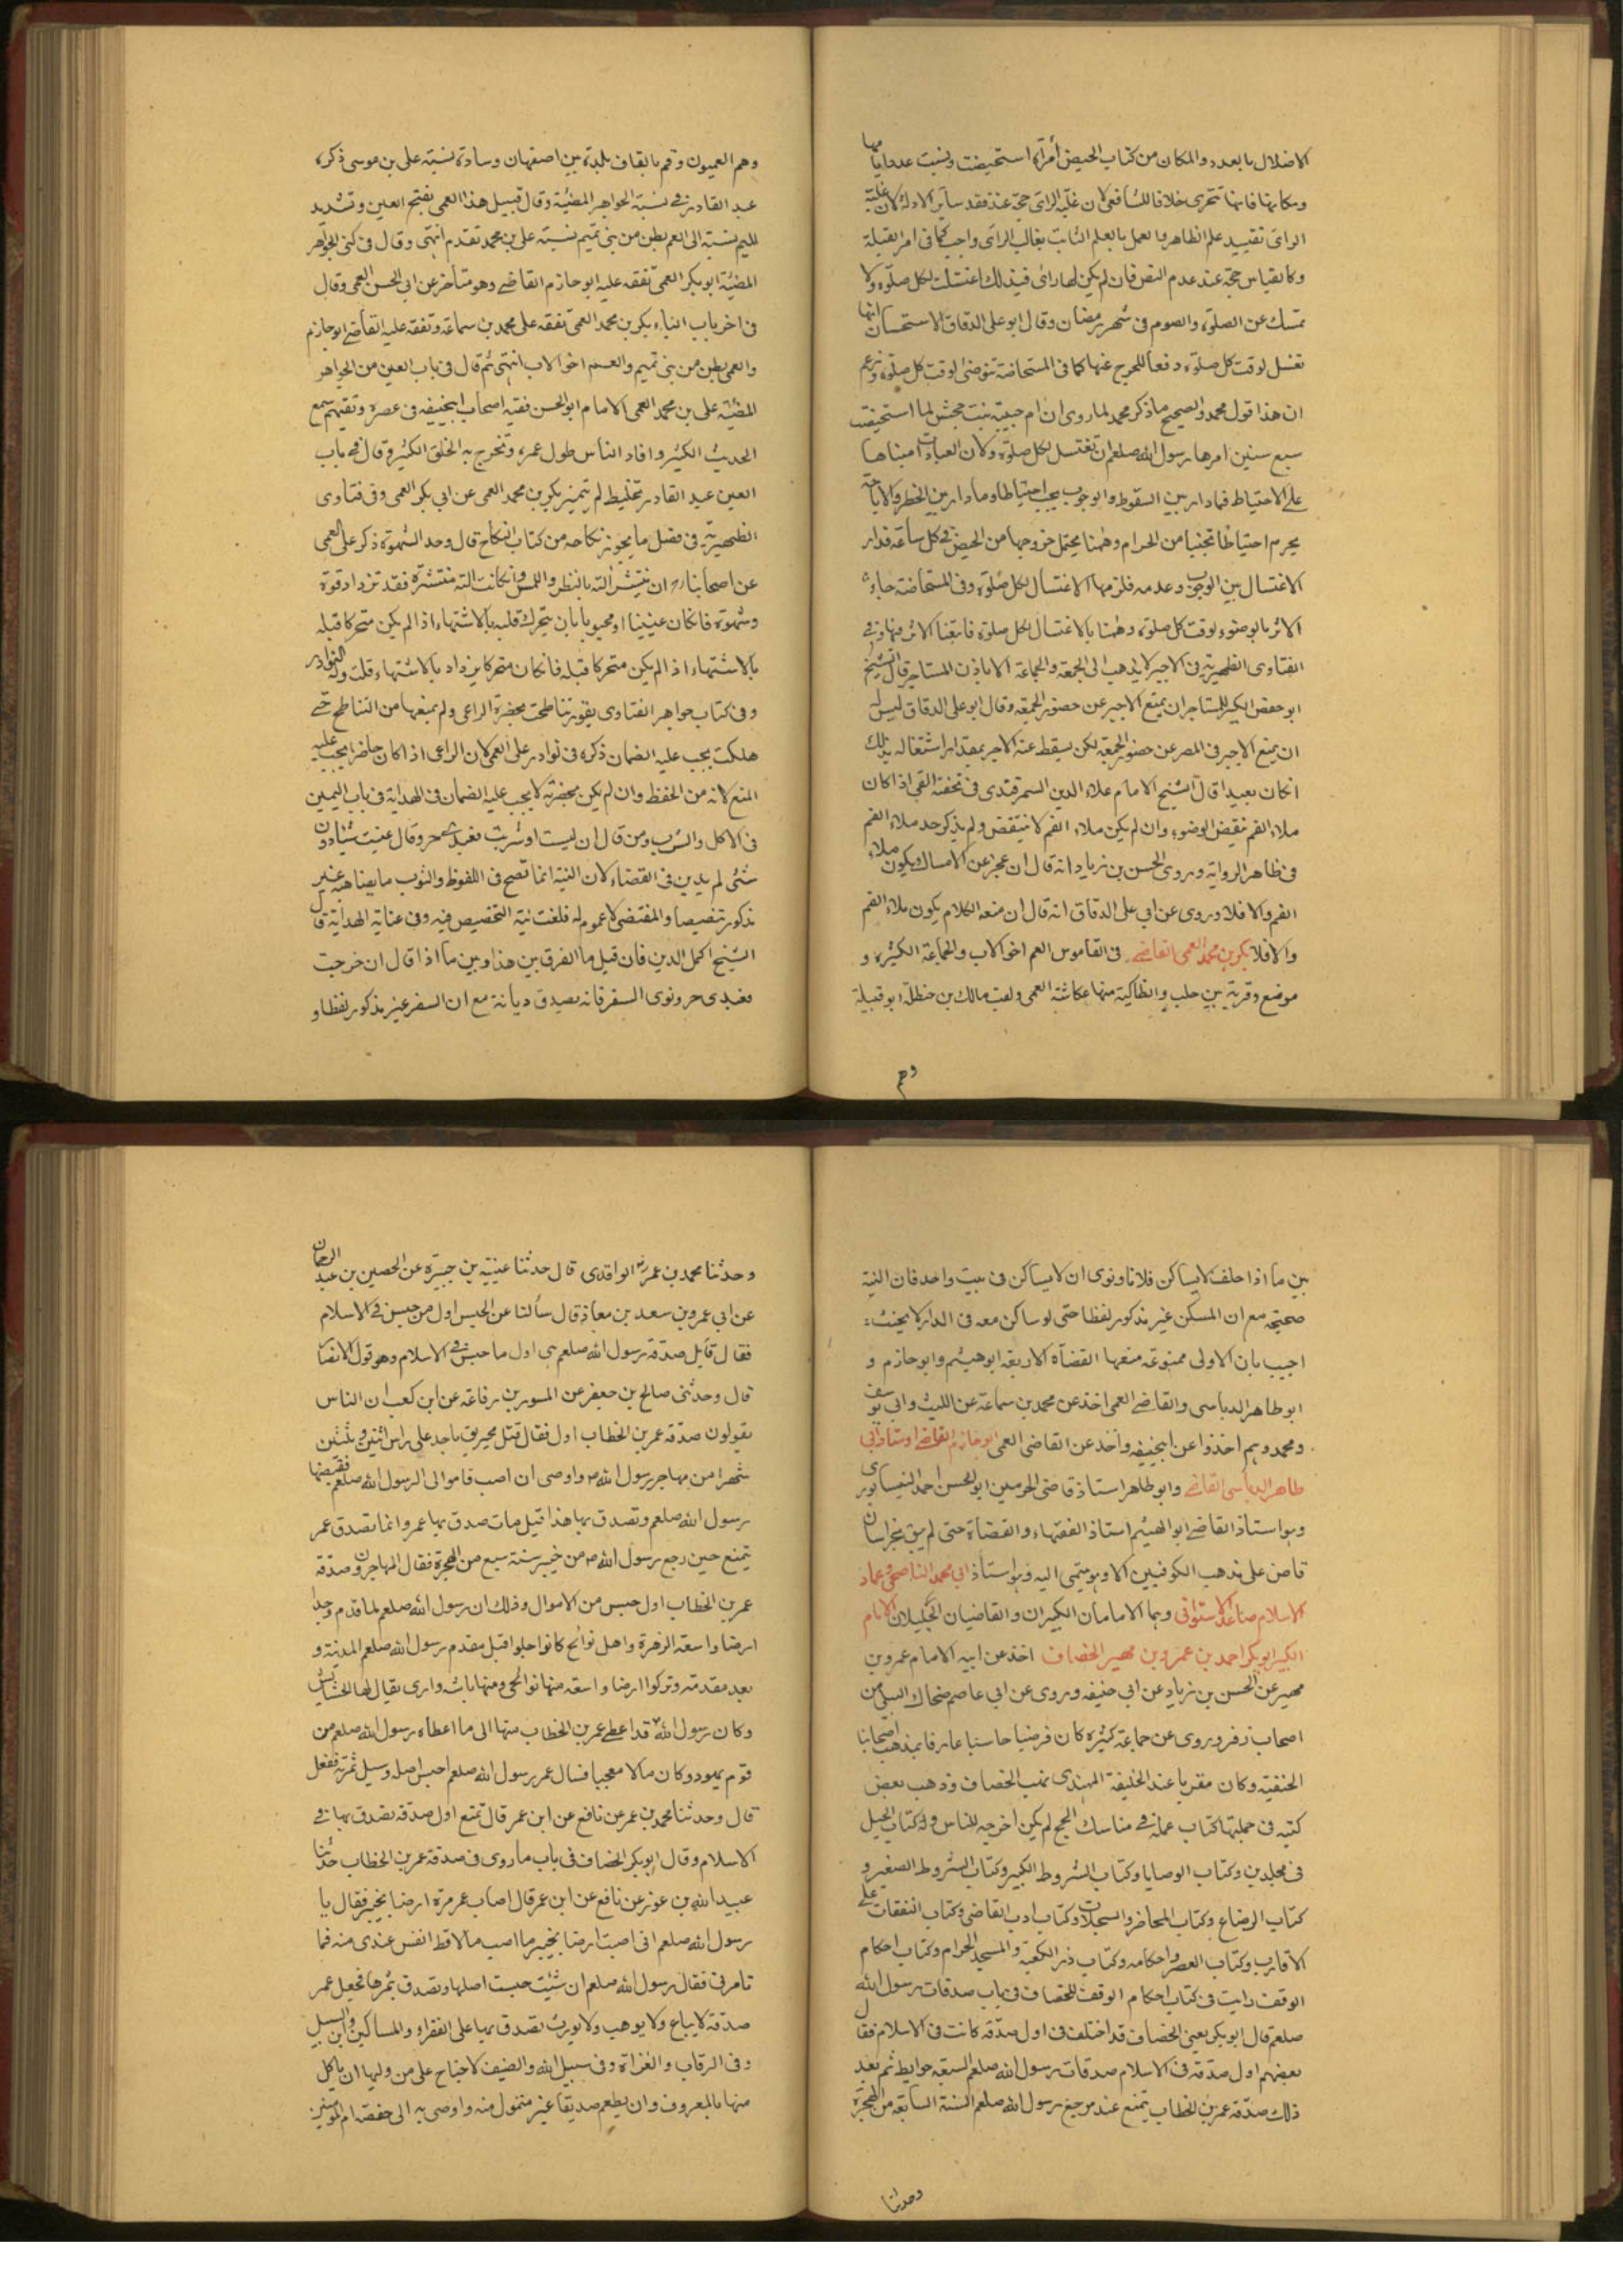 الاضلال بالعدد والمكان من كتاب الحيض امرأة استحيضت ونسيت عدد ايامها
ومكانها فانها تتحرى خلافا للشافعي لان غلبة الراى حجة عند فقد سائر الادلة لان غلبة
الراى تفييد علم الظاهر والعمل بالعلم الثابت بغالب الراى واجب كما فى امر القبلة
وكالقياس حجة عند عدم النص فان لم يكن لها راى فى ذلك اغتسلت لكل صلوة ولا
تمسك عن الصلوة والصوم فى شهر رمضان وقال ابو على الدقاق الاستحسان انها
تغسل لوقت كل صلوة دفعا للحرج عنها كما فى المستحاضة تتوضئ لوقت كل صلوة وزعم
ان هذا قول محمد والصحيح ما ذكر محمد لما روى ان ام حبيبة بنت جحش لما استحيضت
سبع سنين امرها رسول الله صلعم ان تغتسل لكل صلوة ولان العبادات مبناها
على الاحتياط فما دار بين السقوط والوجوب يجب احتياطا وما دار بين الحظر والاباحة
يحرم احتياطا تجنبا من الحرام وههنا يحتمل خروجها من الحيض فى كل ساعة فدار
الاغتسال بين الوجوب وعدمه فلزمها الاغتسال لكل صلوة وفى المستحاضة جاء
الاثر بالوضوء لوقت كل صلوة وههنا بالاغتسال لكل صلوة فاتبعنا الاثر فيها وفى
الفتاوى الظهيرية فى الاجير لا يذهب الى الجمعة والجماعة الا باذن المستاجر قال الشيخ
ابو حفص الكبير للمستاجر ان يمنع الاجير عن حضور الجمعة وقال ابو على الدقاق ليس له
ان يمنع الاجير فى المصر عن حضور الجمعة لكن يسقط عنه الاجر بمقدار اشتغاله بذلك
انكان بعيدا قال الشيخ الامام علاء الدين السمرقندى فى تحفته القى اذا كان
ملاء الفم ينقض الوضوء وان لم يكن ملاء الفم لا ينتقض ولم يذكر حد ملاء الفم
فى ظاهر الرواية وروى الحسن بن زياد انه قال ان عجز عن الامساك يكون ملاء
الفم والا فلا وروى عن ابى على الدقاق انه قال ان منعه الكلام يكون ملاء الفم
والا فلا بكر بن محمد العمى القاضى فى القاموس العم اخو الاب والجماعة الكثيرة و
موضع وقرية بين حلب وانطاكية منها عكاشة العمى ولقب مالك بن حنظلة ابو قبيلة
وهم
وهم العميون وقم بالقاف بلدة بين اصفهان وساوة نسبته على بن موسى ذكره
عبد القادر فى نسبة الجواهر المضيئة وقال قبيل هذا العمى بفتح العين وتشديد
الميم نسبة الى العم بطن من بنى تميم نسبته على بن محمد تقدم انتهى وقال فى كنى الجواهر
المضيئة ابو بكر العمى تفقه عليه ابو حازم القاضى وهو متأخر عن ابى الحسن العمى وقال
فى اخر باب الباء بكر بن محمد العمى تفقه على محمد بن سماعة وتفقه عليه القاضى ابو حازم
والعمى بطن من بنى تميم والعم اخو الاب انتهى ثم قال فى باب العين من الجواهر
المضيئة على بن محمد العمى الامام ابو الحسن فقيه اصحاب ابيحنيفه فى عصره وتقيهم سمع
الحديث الكثير وافاد الناس طول عمره وتخرج به الخلق الكثير وقال فى باب
العين عبد القادر تخليط لم يتميز بكر بن محمد العمى عن ابى بكر العمى وفى فتاوى
الظهيرية فى فصل ما يجوز نكاحه من كتاب النكاح قال وحد الشهوة ذكر على العمى
عن اصحابنا ان تنتشر الته بالنظر واللمس وانكانت الته منتشرة فقد تزداد قوة
وشهوة فانكان عنينا او مجبوبا بان يتحرك قلبه بالاشتهاء اذا لم يكن متحركا قبله
بالاشتهاء اذا لم يكن متحركا قبله فانكان متحركا يزداد بالاشتهاء قلت وله النوادر
وفى كتاب جواهر الفتاوى بقور تناطحت بحضرة الراعى ولم يمنعها من التناطح حتى
هلكت يجب عليه الضمان ذكره فى نوادر على العمى لان الراعى اذا كان حاضرا يجب عليه
المنع لانه من الحفظ وان لم يكن بحضرته لا يجب عليه الضمان فى الهداية فى باب اليمين
فى الاكل والشرب ومن قال ان لبست او شربت فعبدى حر وقال عنيت شيئا دون
شئى لم يدين فى القضاء لان النية انما تصح فى اللفوظ والثوب ما يضاهيه غير
مذكور تنصيصا والمقتضى لا عموم له فلغت نية التخصيص فيه وفى عناية الهداية قال
الشيخ اكمل الدين فان قيل ما الفرق بين هذا وبين ما اذا قال ان خرجت
فعبدى حر ونوى السفر فانه يصدق ديانة مع ان السفر غير مذكور لفظا و
بين ما اذا حلف لا يساكن فلانا ونوى ان لا يساكن فى بيت واحد فان النية
صحيحة مع ان المسكن غير مذكور لفظا حتى لو ساكن معه فى الدار لا يحنث
اجيب بان الاولى ممنوعة منعها القضاة الاربعة ابو هيثم وابو حازم و
ابو طاهر الدباسى والقاضى العمى اخذ عن محمد بن سماعة عن الليث وابى يوسف
ومحمد وهم اخذوا عن ابيحنيفه واخذ عن القاضى العمى ابو حازم القاضى استاذ ابى
طاهر الدباسى القاضى وابو طاهر استاذ قاضى الحرمين ابو الحسن احمد النيسابورى
وهو استاذ القاضى ابو الهيثم استاذ الفقهاء والقضاة حتى لم يبق بخراسان
قاض على مذهب الكوفيين الا وهو ينتمى اليه وهو استاذ ابى محمد الناصحى وعماد
الاسلام صاعد الاستوائى وهما الامامان الكبيران والقاضيان الجليلان الامام
الكبير ابو بكر احمد بن عمرو بن مهير الخصاف اخذ عن ابيه الامام عمرو بن
مهير عن الحسن بن زياد عن ابى حنيفه وروى عن ابى عاصم ضحاك النبيل من
اصحاب زفر وروى عن جماعة كثيرة كان فرضيا حاسبا عارفا بمذهب اصحابنا
الحنفية وكان مقربا عند الخليفة المهتدى نهب الخصاف وذهب بعض
كتبه فى جملتها كتاب عمله فى مناسك الحج لم يكن اخرجه للناس وله كتاب الحيل
فى مجلدين وكتاب الوصايا وكتاب الشروط الكبير وكتاب الشروط الصغير و
كتاب الرضاع وكتاب المحاضر والسجلات وكتاب ادب القاضى وكتاب النفقات على
الاقارب وكتاب العصر واحكامه وكتاب ذرع الكعبة والمسجد الحرام وكتاب احكام
الوقف رايت فى كتاب احكام الوقف للخصاف فى باب صدقات رسول الله
صلعم قال ابو بكر يعنى الخصاف قد اختلف فى اول صدقة كانت فى الاسلام فقال
بعضهم اول صدقة فى الاسلام صدقات رسول الله صلعم السبعة حوايط ثم بعد
ذلك صدقة عمر بن الخطاب بثمغ عند مرجع رسول الله صلعم السنة السابعة من الهجرة
وحدثنا
وحدثنا محمد بن عمر الواقدى قال حدثنا عن الحصين بن عبد الرحمان
عن ابى عمرو بن سعد بن معاذ قال سألنا عن الحبس اول من حبس فى الاسلام
فقال قايل صدقة رسول الله صلعم هى اول ما حبس فى الاسلام وهو قول الانصار
قال وحدثنى صالح بن جعفر عن المسور بن رفاعة عن ابن كعب ان الناس
يقولون صدقة عمر بن الخطاب اول فقال قتل مخيريق باحد على راس اثنين وثلثين
شهرا من مهاجر رسول الله واوصى ان اصب فاموالى الرسول الله صلعم فقبضها
رسول الله صلعم وتصدق بها هذا قبل ما تصدق بها عمر وانما تصدق عمر
بثمغ حين رجع رسول الله من خيبر سنة سبع من الهجرة فقال المهاجرون صدقة
عمر بن الخطاب اول حبس من الاموال وذلك ان رسول الله صلعم لما قدم وجد
ارضا واسعة الزهرة واهل كانوا اجلوا قبل مقدم رسول الله صلعم المدينة و
بعد مقدمه وتركوا ارضا واسعة منها ومنها يقال لها
وكان رسول الله قد اعطى عمر بن الخطاب منها الى ما اعطاه رسول الله صلعم من
قوم يهود وكان مالا معجبا فسال عمر رسول الله صلعم احبس اصله وسبل ثمرته ففعل
قال وحدثنا محمد بن عمر عن نافع عن ابن عمر قال ثمغ اول صدقة تصدق بها فى
الاسلام وقال ابو بكر الخصاف فى باب ما روى فى صدقة عمر بن الخطاب حدثنا
عبيد الله بن عن نافع عن ابن عمر قال اصاب عمر مرة ارضا بخيبر فقال يا
رسول الله صلعم انى اصبت ارضا بخيبر ما اصب مالا قط انفس عندى منه فما
تامرنى فقال رسول الله صلعم ان شئت حبست اصلها وتصدق بثمرها فجعل عمر
صدقة لا يباع ولا يوهب ولا يورث تصدق بها على الفقراء والمساكين وابن السبيل
وفى الرقاب والغزاة وفى سبيل الله والضيف لا جناح على من وليها ان ياكل
منها بالمعروف وان يطعم صديقا غير متمول منه واوصى به الى حفصة ام المومنين